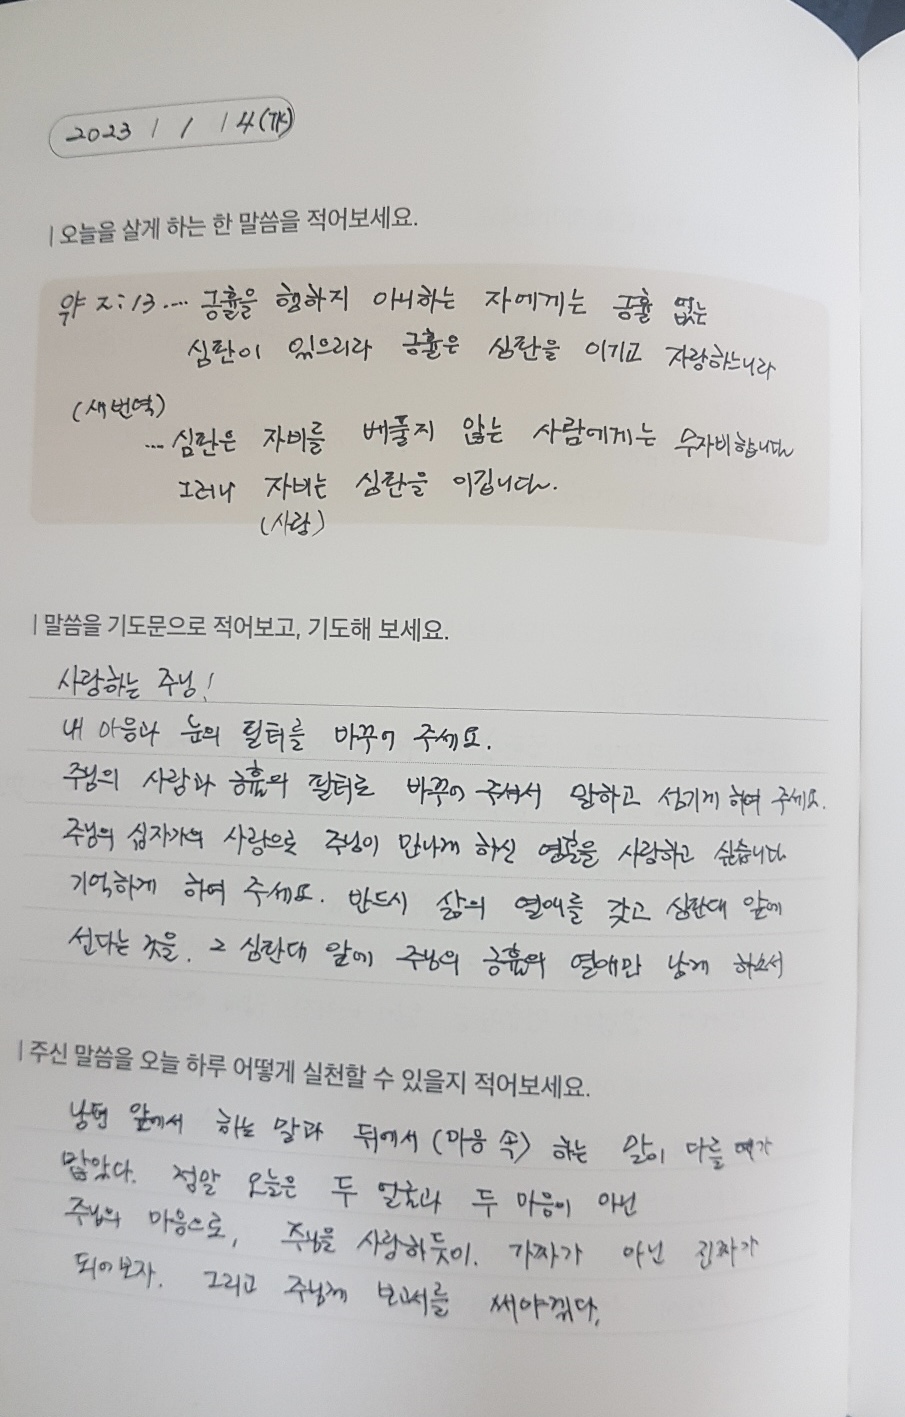 2023 / 1 / 4(水)
오늘을 살게 하는 한 말씀을 적어보세요.
약 2:13 .... 긍휼을 행하지 아니하는 자에게는 긍휼 없는
심판이 있으리라 긍휼은 심판을 이기고 자랑하느니라
(새번역)
... 심판은 자비를 베풀지 않는 사람에게는 무자비합니다
그러나 자비는 심판을 이깁니다.
(사랑)
말씀을 기도문으로 적어보고, 기도해 보세요.
사랑하는 주님!
내 마음과 눈의 필터를 바꾸어 주세요.
주님의 사랑과 긍휼의 필터로 바꾸어 주셔서 말하고 섬기게 하여 주세요.
주님의 십자가의 사랑으로 주님이 만나게 하신 영혼을 사랑하고 싶습니다
기억하게 하여 주세요. 반드시 삶의 열매를 갖고 심판대 앞에
선다는 것을. 그 심판대 앞에 주님의 긍휼의 열매만 남게 하소서
주신 말씀을 오늘 하루 어떻게 실천할 수 있을지 적어보세요.
남편 앞에서 하는 말과 뒤에서 (마음 속) 하는 말이 다를 때가
많았다. 정말 오늘은 두 얼굴과 두 마음이 아닌
주님의 마음으로, 주님을 사랑하듯이. 가짜가 아닌 진짜가
되어보자. 그리고 주님께 보고서를 써야겠다.